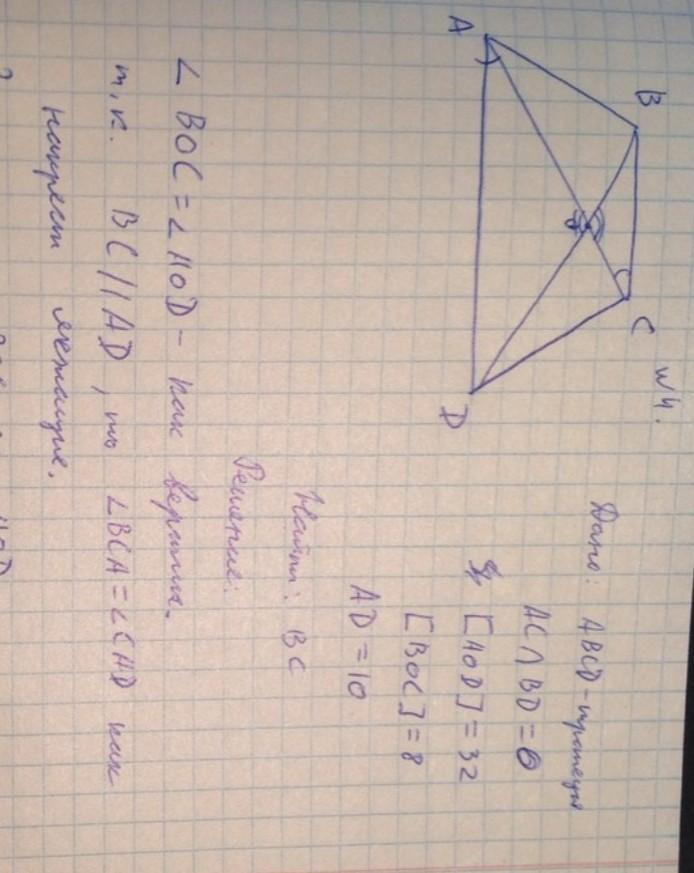 №4.
B
C
A
D
O
Дано: ABCD - трапеция
AC∩BD=O
[AOD]=32
[BOC]=8
AD=10
Найти: BC
Решение:
∠BOC=∠AOD - как вертик.
т.к. BC||AD, то ∠BCA=∠CAD как
накрест лежащие.